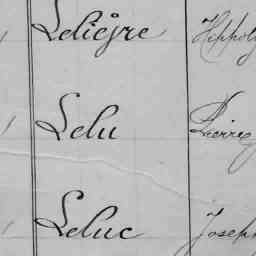 Lelièvre Hippoly
Lelu Pierre
Leluc Joseph